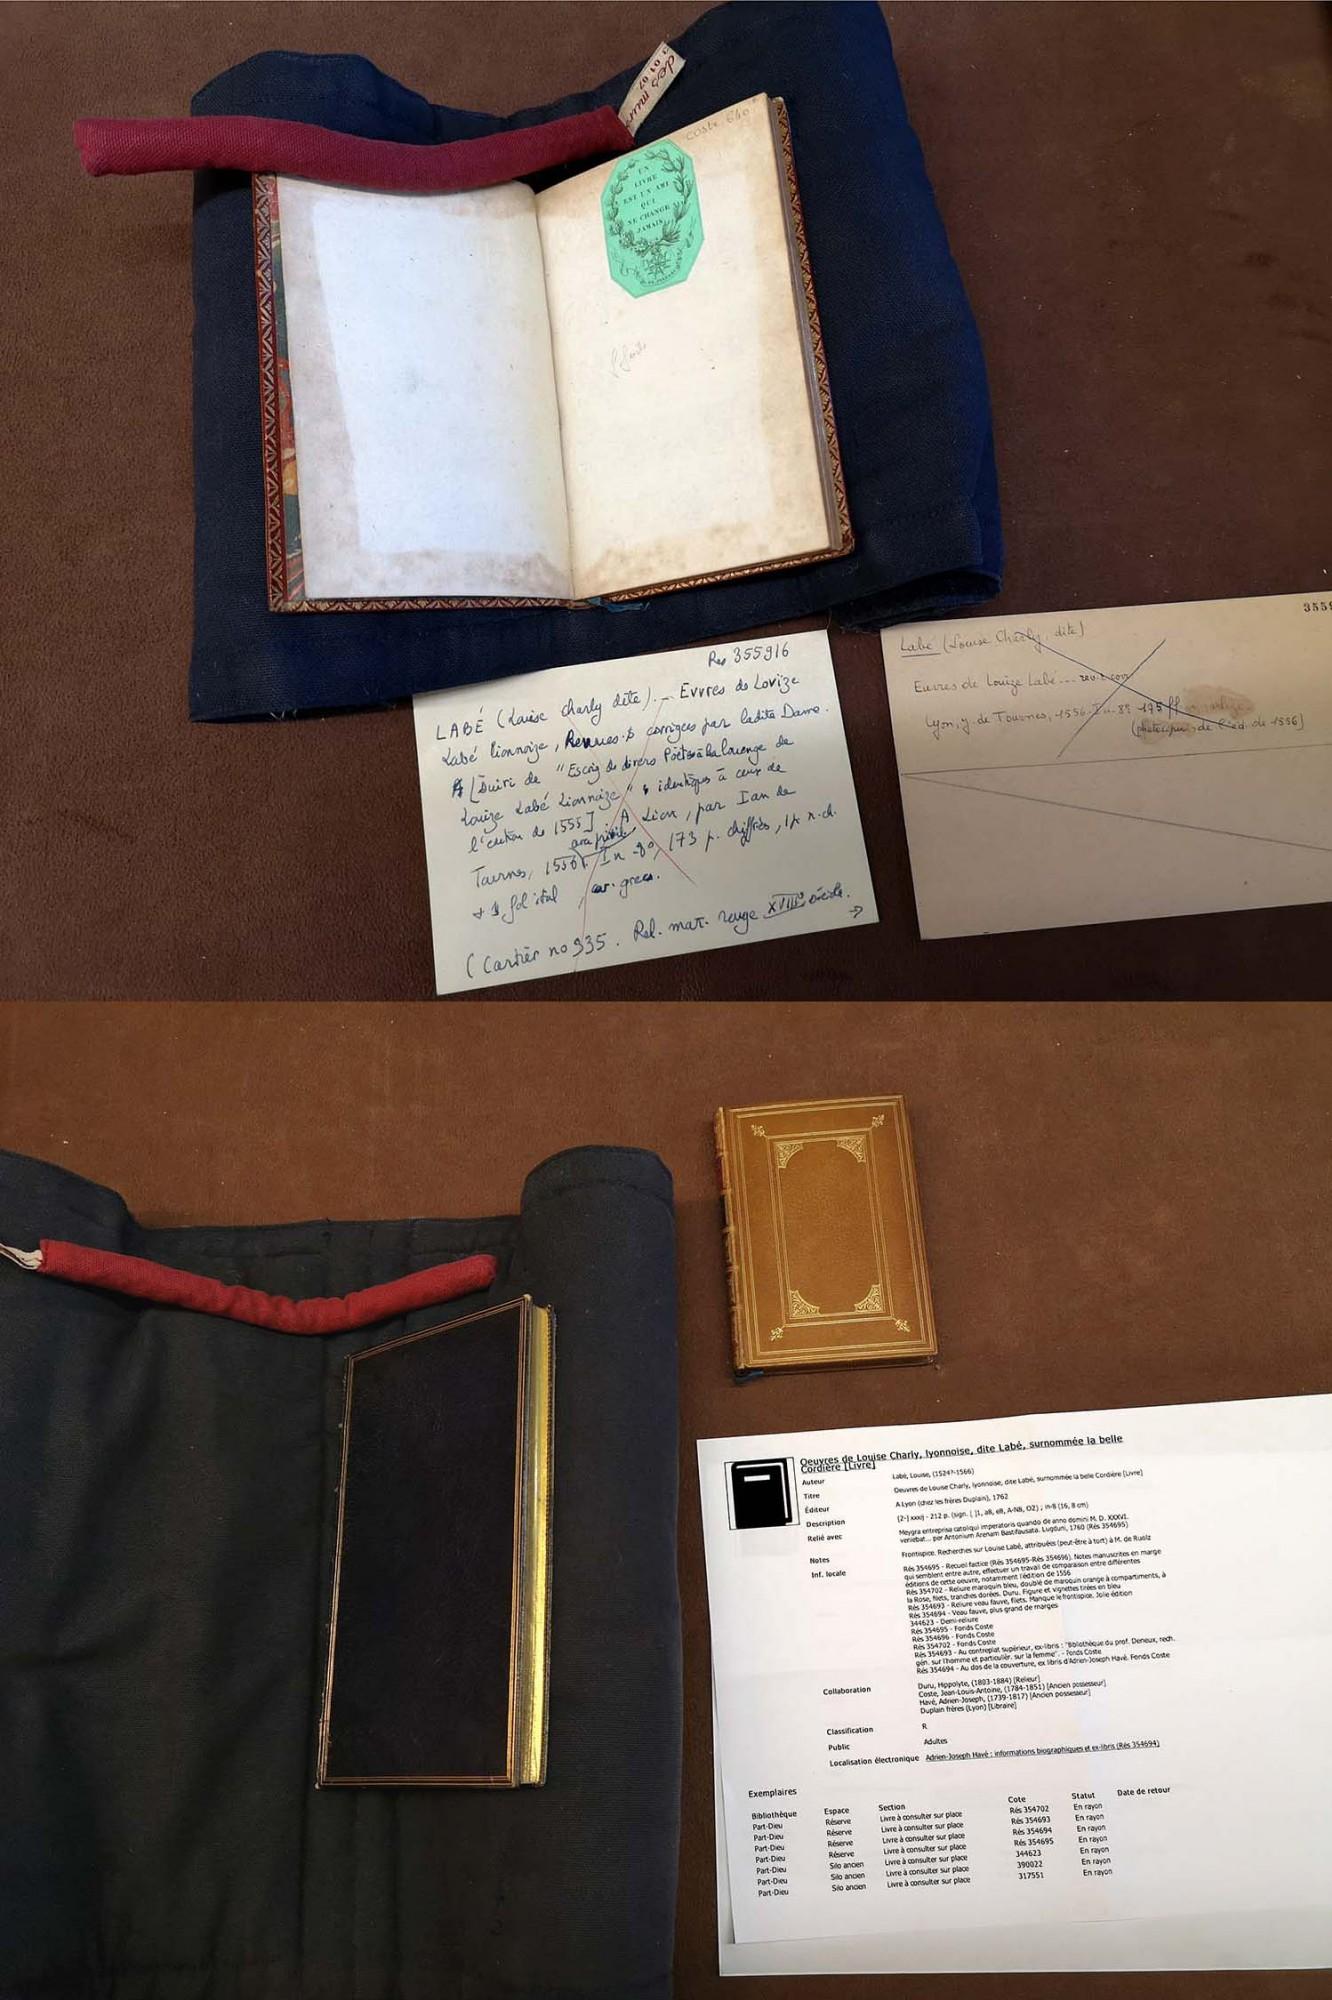 des mu
3 01 07
Coste 640
UN
LIVRE
EST UN AMI
QUI
NE CHANGE
JAMAIS
Rés 355916
LABÉ (Louise Charly dite). _ Evvres de Lovize
Labé lionnoize, Revues & corrigees par ladite Dame.
[Suivi de "Escriz de divers Poètes à la louenge de
Louize Labé Lionnoize" identiques à ceux de
l'edition de 1555] A Lion, par Ian de
Tournes, 1556. In-8°, 173 p. chiffrés, 1 p. n. ch.
ital., car. grecs.
(Cartier no 335. Rel. mar. rouge XVIIIe siècle.
→
3559
Labé (Louise Charly, dite)
Euvres de Louize Labé ---- rev. & corr
Lyon, J. de Tournes, 1556. In-8° 175 ff
(photocopie de l'éd. de 1556)
Oeuvres de Louise Charly, lyonnoise, dite Labé, surnommée la belle
Cordière [Livre]
Auteur Labé, Louise, (1524?-1566)
Titre Oeuvres de Louise Charly, lyonnoise, dite Labé, surnommée la belle Cordière [Livre]
Éditeur A Lyon (chez les frères Duplain), 1762
Description [2-] xxxij - 212 p. (sign. [ ]1, a8, e8, A-N8, O2) ; in-8 (16, 8 cm)
Relié avec Meygra entreprisa catoliqui imperatoris quando de anno domini M. D. XXXVI.
veniebat... per Antonium Arenam Bastifausata. Lugduni, 1760 (Rés 354695)
Notes Frontispice. Recherches sur Louise Labé, attribuées (peut-être à tort) à M. de Ruolz
Inf. locale Rés 354695 - Recueil factice (Rés 354695-Rés 354696). Notes manuscrites en marge
qui semblent entre autre, effectuer un travail de comparaison entre différentes
éditions de cette oeuvre, notamment l'édition de 1556
Rés 354702 - Reliure maroquin bleu, doublé de maroquin orange à compartiments, à
la Rose, filets, tranches dorées. Duru. Figure et vignettes tirées en bleu
Rés 354693 - Reliure veau fauve, filets. Manque le frontispice. Jolie édition
Rés 354694 - Veau fauve, plus grand de marges
344623 - Demi-reliure
Rés 354695 - Fonds Coste
Rés 354696 - Fonds Coste
Rés 354702 - Fonds Coste
Rés 354693 - Au contreplat supérieur, ex-libris : "Bibliothèque du prof. Deneux, rech.
gén. sur l'homme et particulièr. sur la femme". - Fonds Coste
Rés 354694 - Au dos de la couverture, ex libris d'Adrien-Joseph Havé. Fonds Coste
Collaboration Duru, Hippolyte, (1803-1884) [Relieur]
Coste, Jean-Louis-Antoine, (1784-1851) [Ancien possesseur]
Havé, Adrien-Joseph, (1739-1817) [Ancien possesseur]
Duplain frères (Lyon) [Libraire]
Classification R
Public Adultes
Localisation électronique Adrien-Joseph Havé : informations biographiques et ex-libris (Rés 354694)
Exemplaires
Bibliothèque Espace Section Cote Statut Date de retour
Part-Dieu Réserve Livre à consulter sur place Rés 354702 En rayon
Part-Dieu Réserve Livre à consulter sur place Rés 354693 En rayon
Part-Dieu Réserve Livre à consulter sur place Rés 354694 En rayon
Part-Dieu Réserve Livre à consulter sur place Rés 354695 En rayon
Part-Dieu Silo ancien Livre à consulter sur place 344623 En rayon
Part-Dieu Silo ancien Livre à consulter sur place 390022 En rayon
Part-Dieu Silo ancien Livre à consulter sur place 317551 En rayon